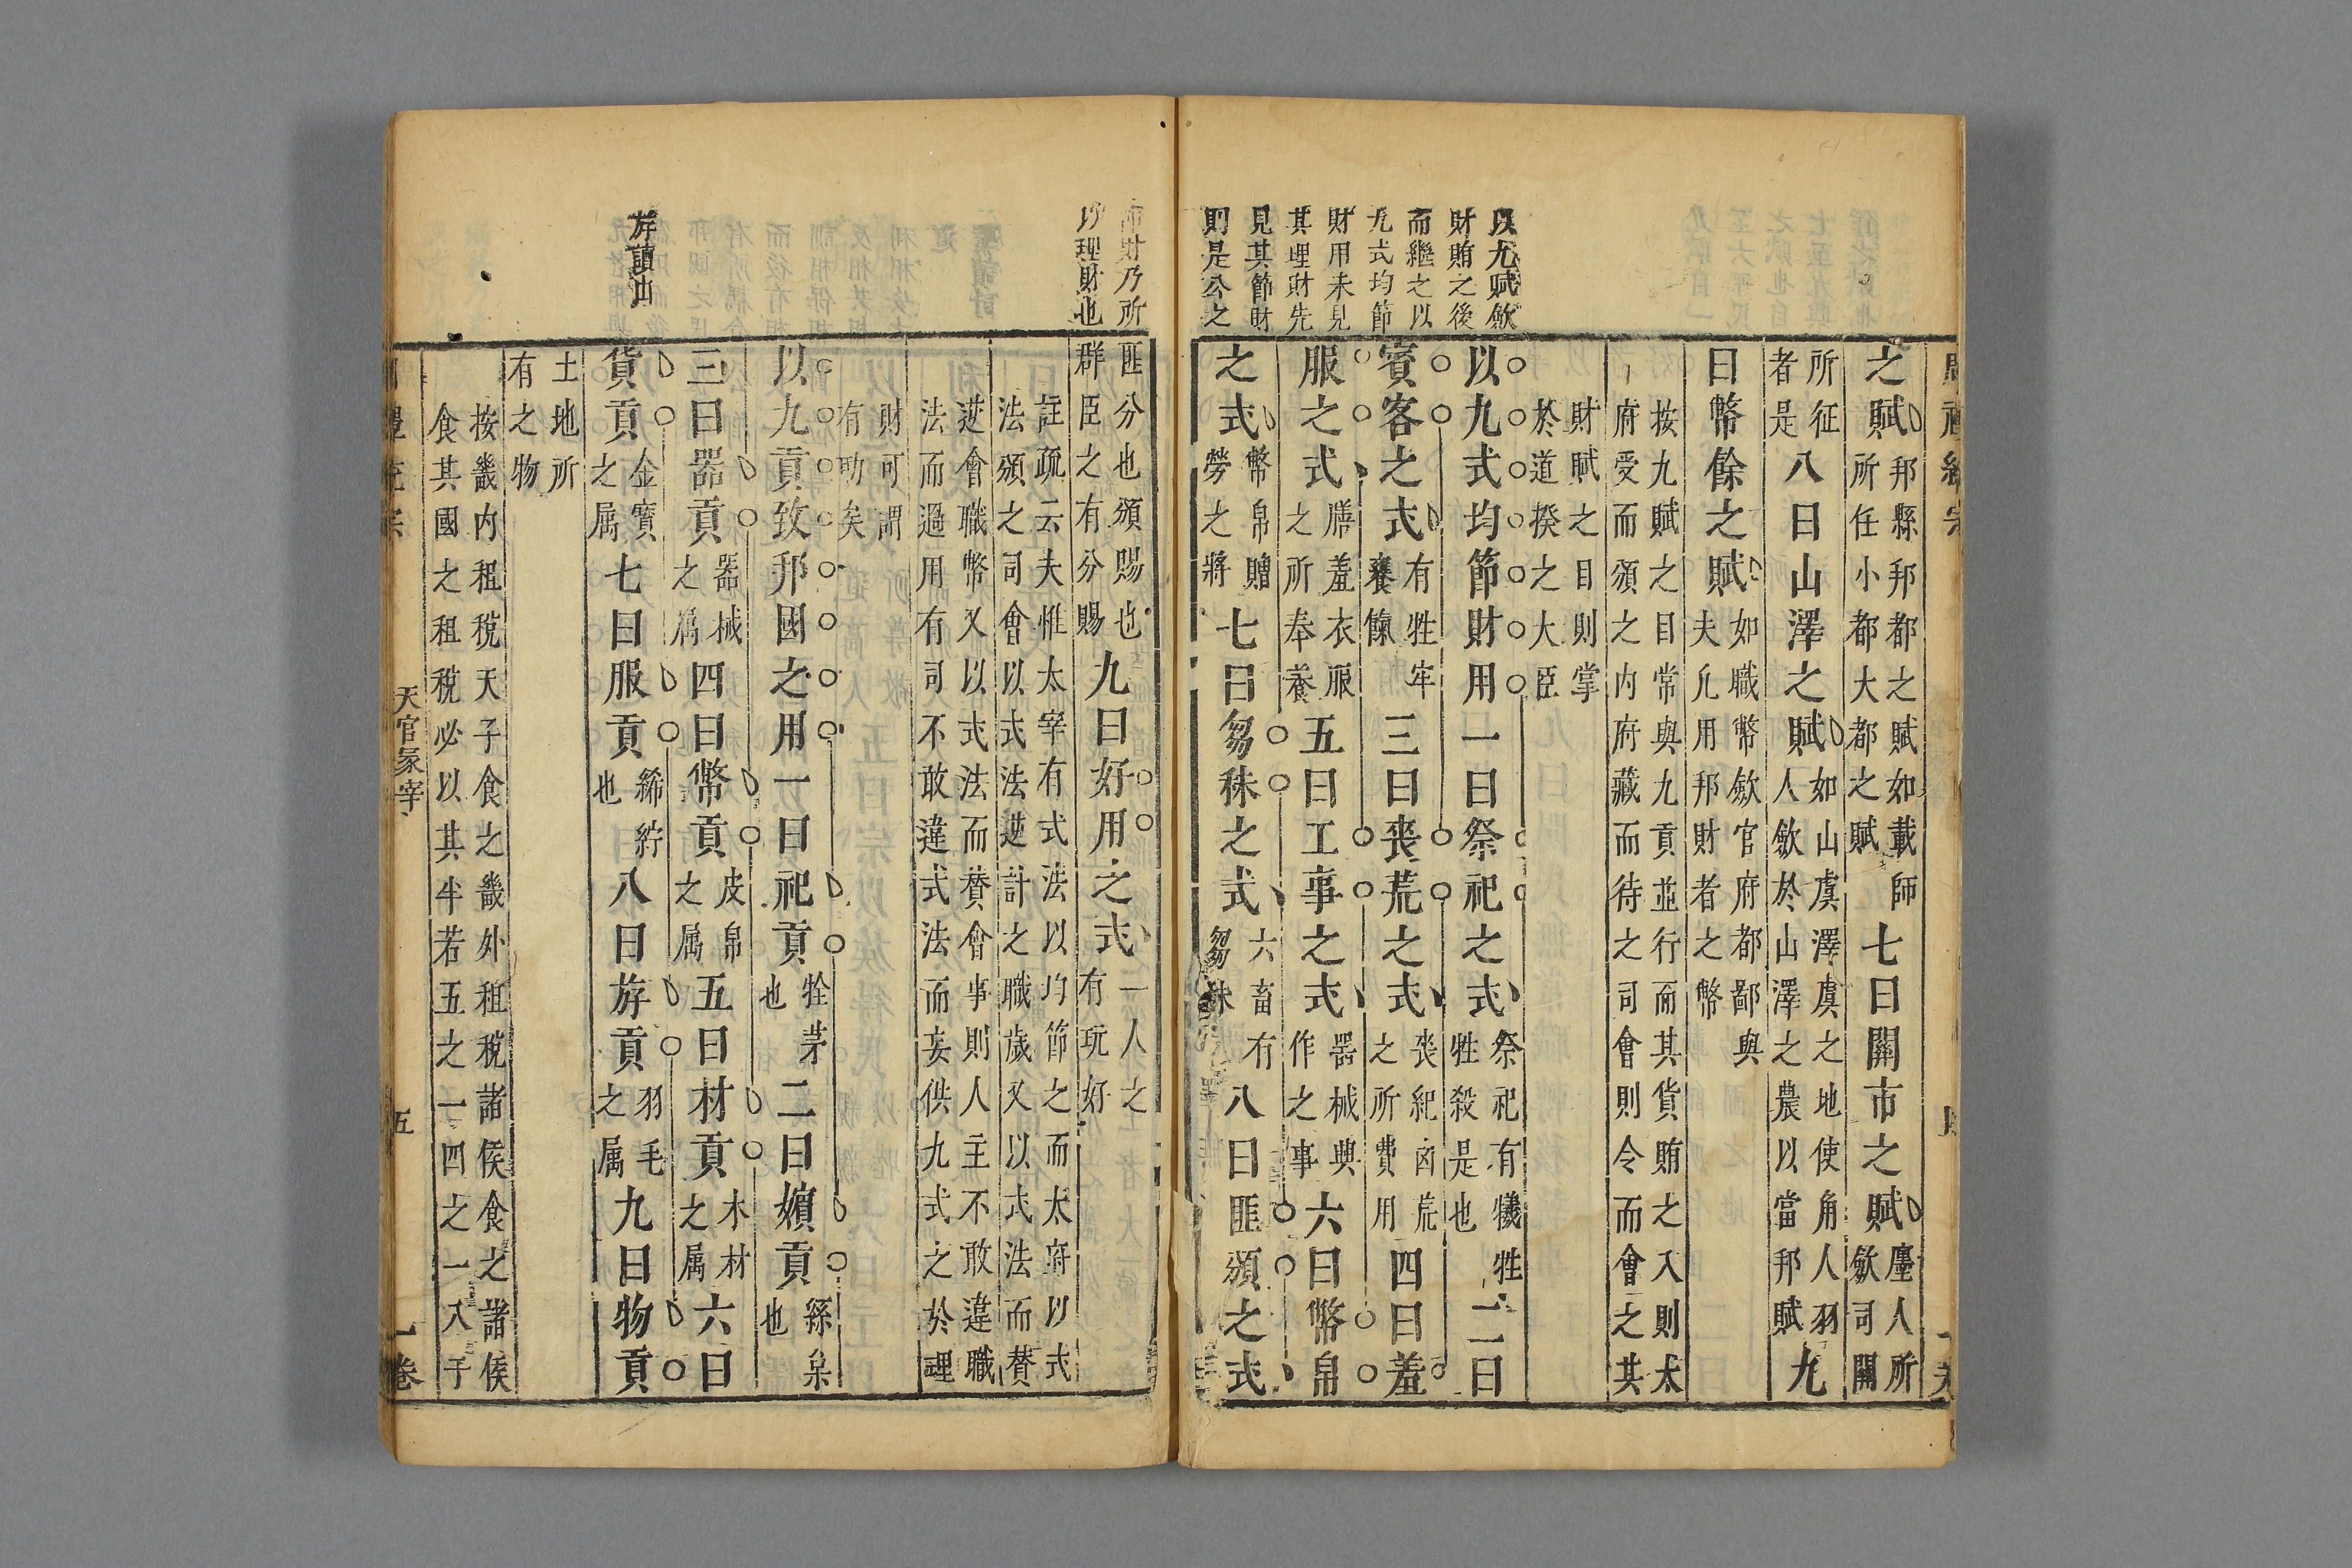 以九賦歛
財賄之後
而繼之以
九式均節
財用未見
其理財先
見其節財
則是公之
之賦邦縣邦都之賦如載師所任小都大都之賦七曰關市之賦廛人所歛司關
所征者是八曰山澤之賦如山虞澤虞之地使角人羽人歛於山澤之農以當邦賦九
曰幣餘之賦如職幣歛官府都鄙與夫凡用邦財者之幣
按九賦之目常與九貢並行而其貨賄之入則太
府受而頒之内府藏而待之司會則令而會之其
財賦之目則掌
於道揆之大臣
以九式均節財用一曰祭祀之式祭祀有犧牲牲殺是也二曰
賓客之式有牲牢饔餼三曰喪荒之式喪紀凶荒之所費用四曰羞
服之式膳羞衣服之所奉養五曰工事之式器械興作之事六曰幣帛
之式幣帛贈勞之將七曰芻秣之式六畜有芻秣八曰匪頒之式
節財乃所
以理財也
斿讀山
匪分也頒賜也群臣之有分賜九曰好用之式一人之有玩好
註疏云夫惟太宰有式法以均節之而太府以式
法頒之司會以式法逆計之職歲又以式法而賛
逆會職幣又以式法而賛會事則人主不敢違職
法而過用有司不敢違式法而妄供九式之於理
財可謂
有功矣
以九貢致邦國之用一曰祀貢牷茅也二曰嬪貢絲枲也
三曰器貢器械之属四曰幣貢皮帛之属五曰材貢木材之属六曰
貨貢金寶之属七曰服貢絺紵也八曰斿貢羽毛之属九曰物貢
土地所
有之物
按畿内租稅天子食之畿外租稅諸侯食之諸侯
食其國之租稅必以其半若五之一四之一入于
天官冢宰
五
一卷